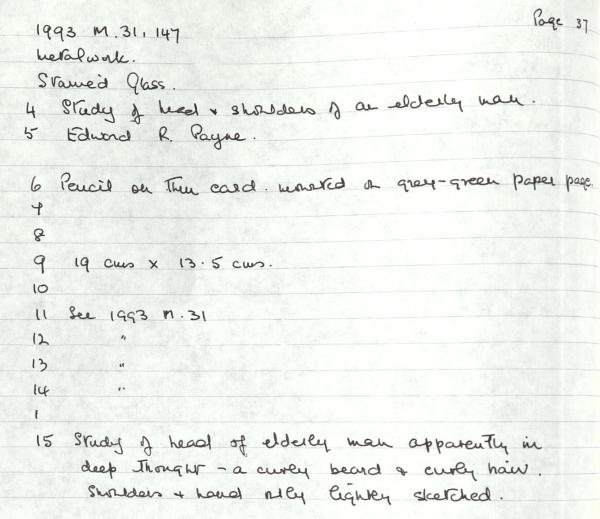 Page 37
1993 M.31.147
Metalwork.
Stained Glass.
4 Study of head & shoulders of an elderly man.
5 Edward R. Payne.
6 Pencil on thin card. mounted on grey-green paper page.
7
8
9 19 cms x 13.5 cms.
10
11 See 1993 M.31
12 "
13 "
14 "
1
15 Study of head of elderly man apparently in
deep thought - a curly beard & curly hair.
Shoulders & hand only lightly sketched.